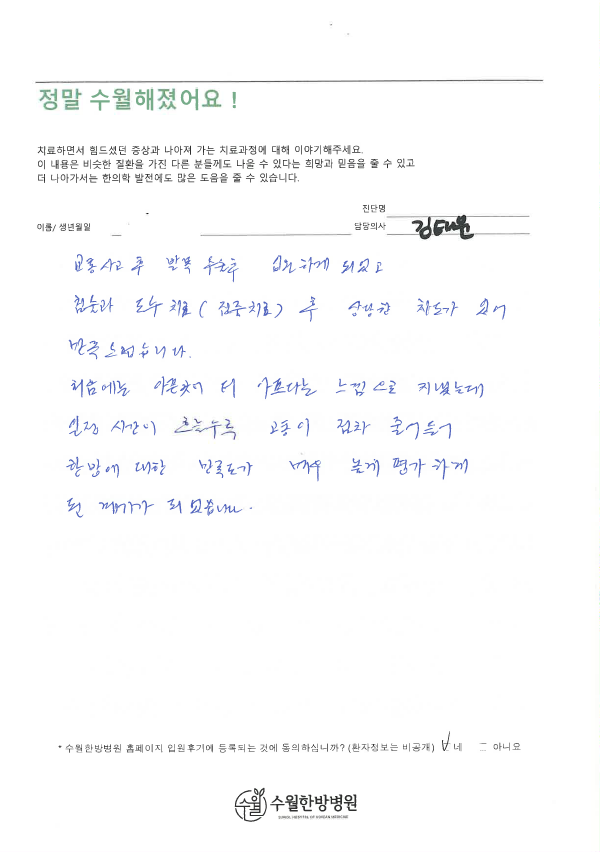 정말 수월해졌어요 !
치료하면서 힘드셨던 증상과 나아져 가는 치료과정에 대해 이야기해주세요.
이 내용은 비슷한 질환을 가진 다른 분들께도 나을 수 있다는 희망과 믿음을 줄 수 있고
더 나아가서는 한의학 발전에도 많은 도움을 줄 수 있습니다.
진단명
이름/ 생년월일
담당의사
교통사고 후 발목 수술후 입원하게 되었고
침술과 도수치료 ( 집중치료 ) 후 상당한 차도가 있어
만족스럽습니다.
처음에는 아픈곳이 더 아프다는 느낌으로 지냈는데
일정 시간이 흐를수록 고통이 점차 줄어들어
한방에 대한 만족도가 매우 높게 평가하게
된 계기가 되었습니다.
* 수월한방병원 홈페이지 입원후기에 등록되는 것에 동의하십니까? (환자정보는 비공개) 네 아니요
수월 수월한방병원
SUWOL HOSPITAL OF KOREAN MEDICINE